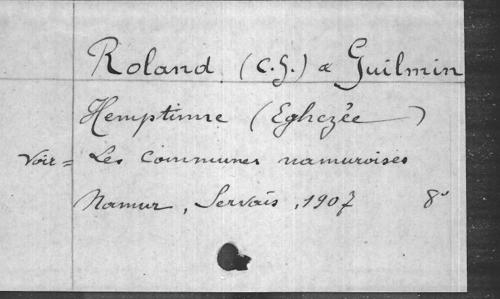 Roland (C.G.) & Guilmin
Hemptinne (Eghezée)
Voir = Les Communes namuroises
Namur, Servais, 1907 8°